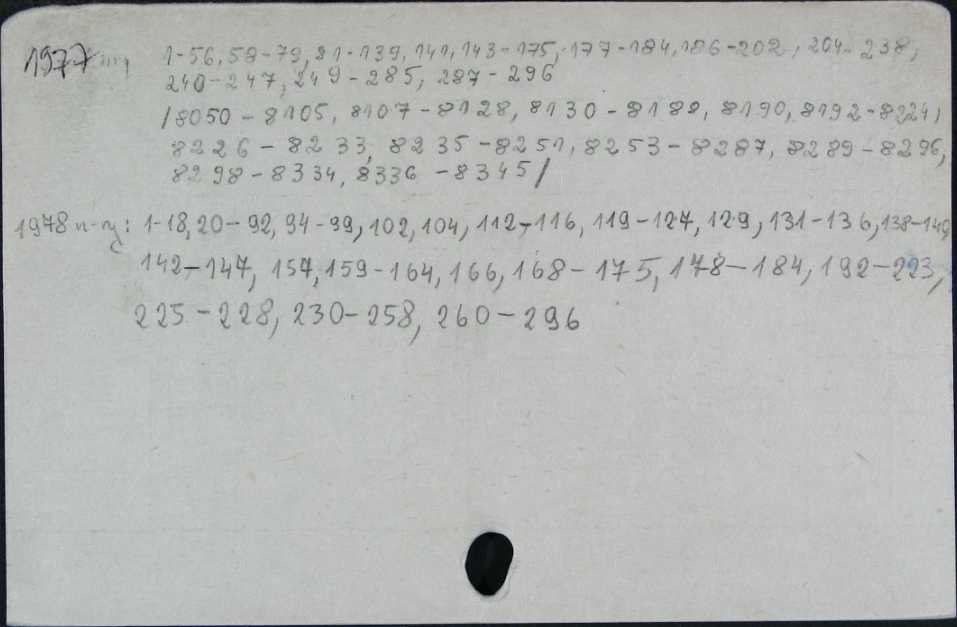 1977 1-56, 58-79, 81-139, 141, 143-175, 177-184, 186-202, 204-238,
240-247, 249-285, 287-296
/8050-8105, 8107-8128, 8130-8188, 8190, 8192-8224,
8226-8233, 8235-8251, 8253-8287, 8289-8296,
8298-8334, 8336-8345/
1978 n-ry: 1-18, 20-92, 94-99, 102, 104, 112-116, 119-127, 129, 131-136, 138-140
142-147, 157, 159-164, 166, 168-175, 178-184, 192-223,
225-228, 230-258, 260-296